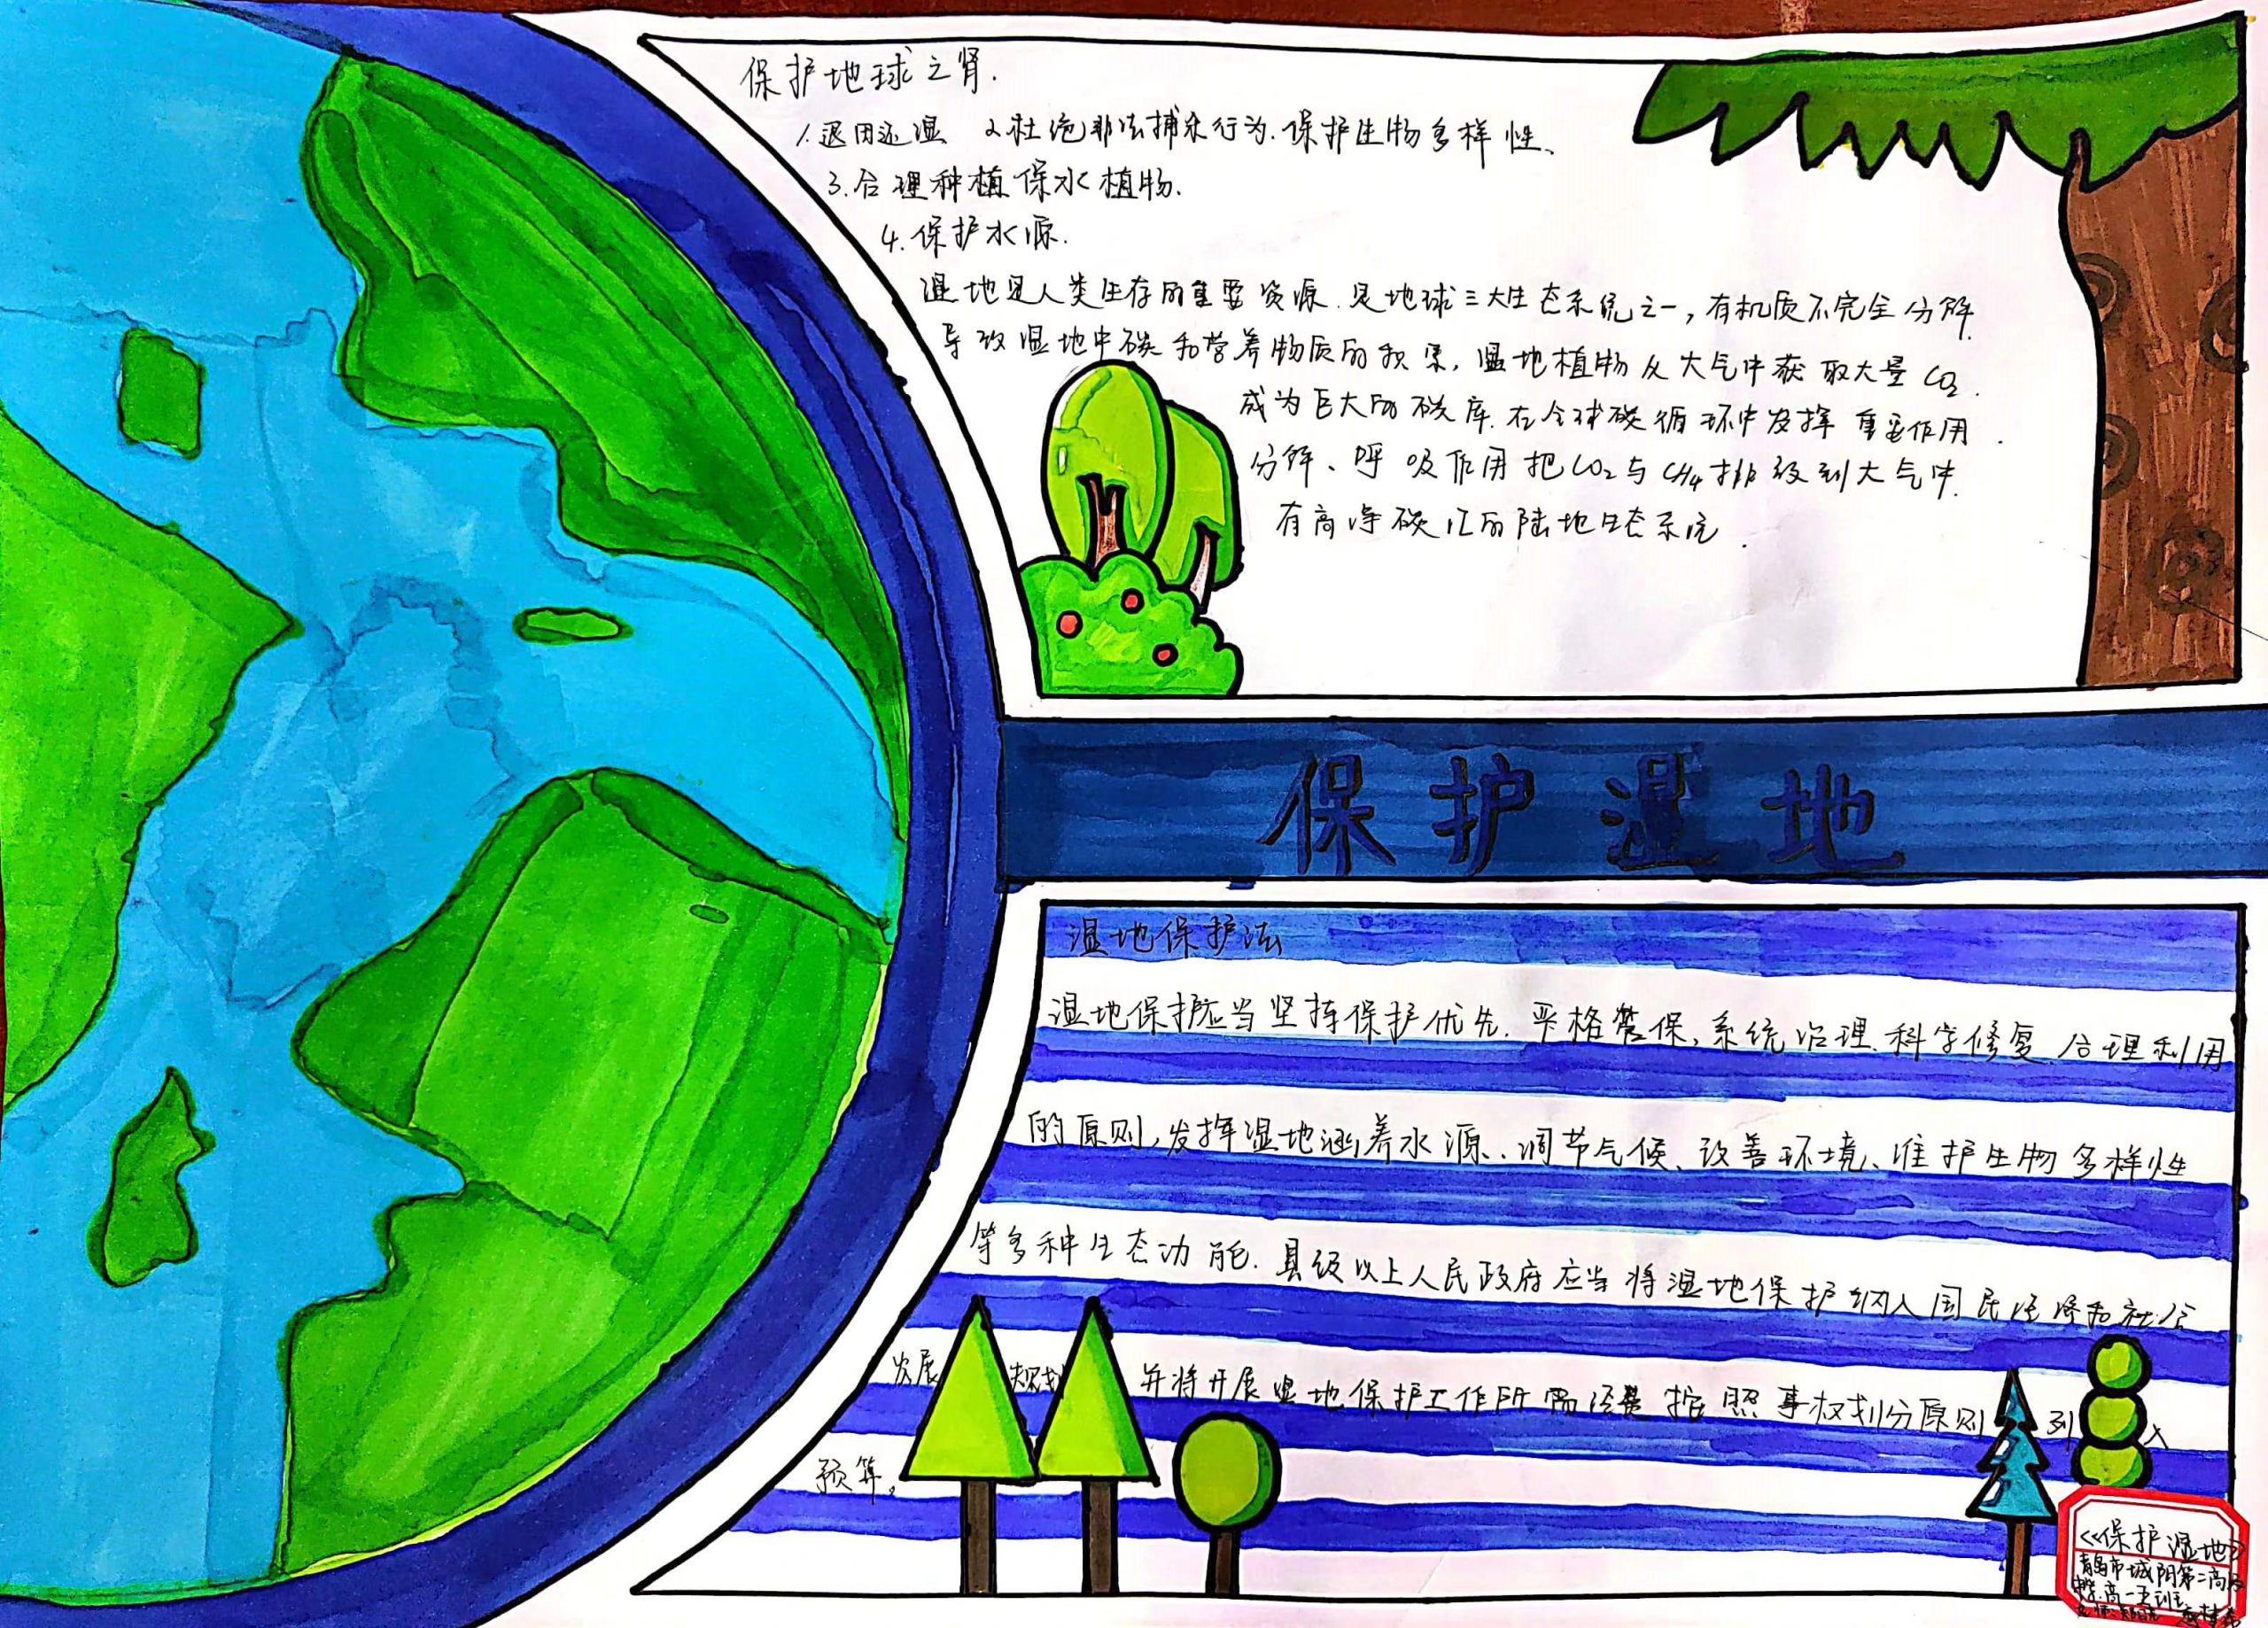 保护地球之肾.
1.退田还湿 2.杜绝非法捕杀行为.保护生物多样性、
3.合理种植保水植物.
4.保护水源.
湿地是人类生存的重要资源.是地球三大生态系统之一,有机质不完全分解.
导致湿地中碳和营养物质的积累,湿地植物从大气中获取大量CO2.
成为巨大的碳库.在全球碳循环中发挥重要作用.
分解、呼吸作用把CO2与CH4排放到大气中.
有高净碳汇的陆地生态系统.
保护湿地
湿地保护法
湿地保护应当坚持保护优先.严格管保,系统治理.科学修复.合理利用
的原则,发挥湿地涵养水源、调节气候、改善环境、维护生物多样性
等多种生态功能.县级以上人民政府应当将湿地保护纳入国民经济和社会
发展规划 并将开展湿地保护工作所需经费按照事权划分原则列入
预算。
《保护湿地》
青岛市城阳第二高级
中学.高一五班